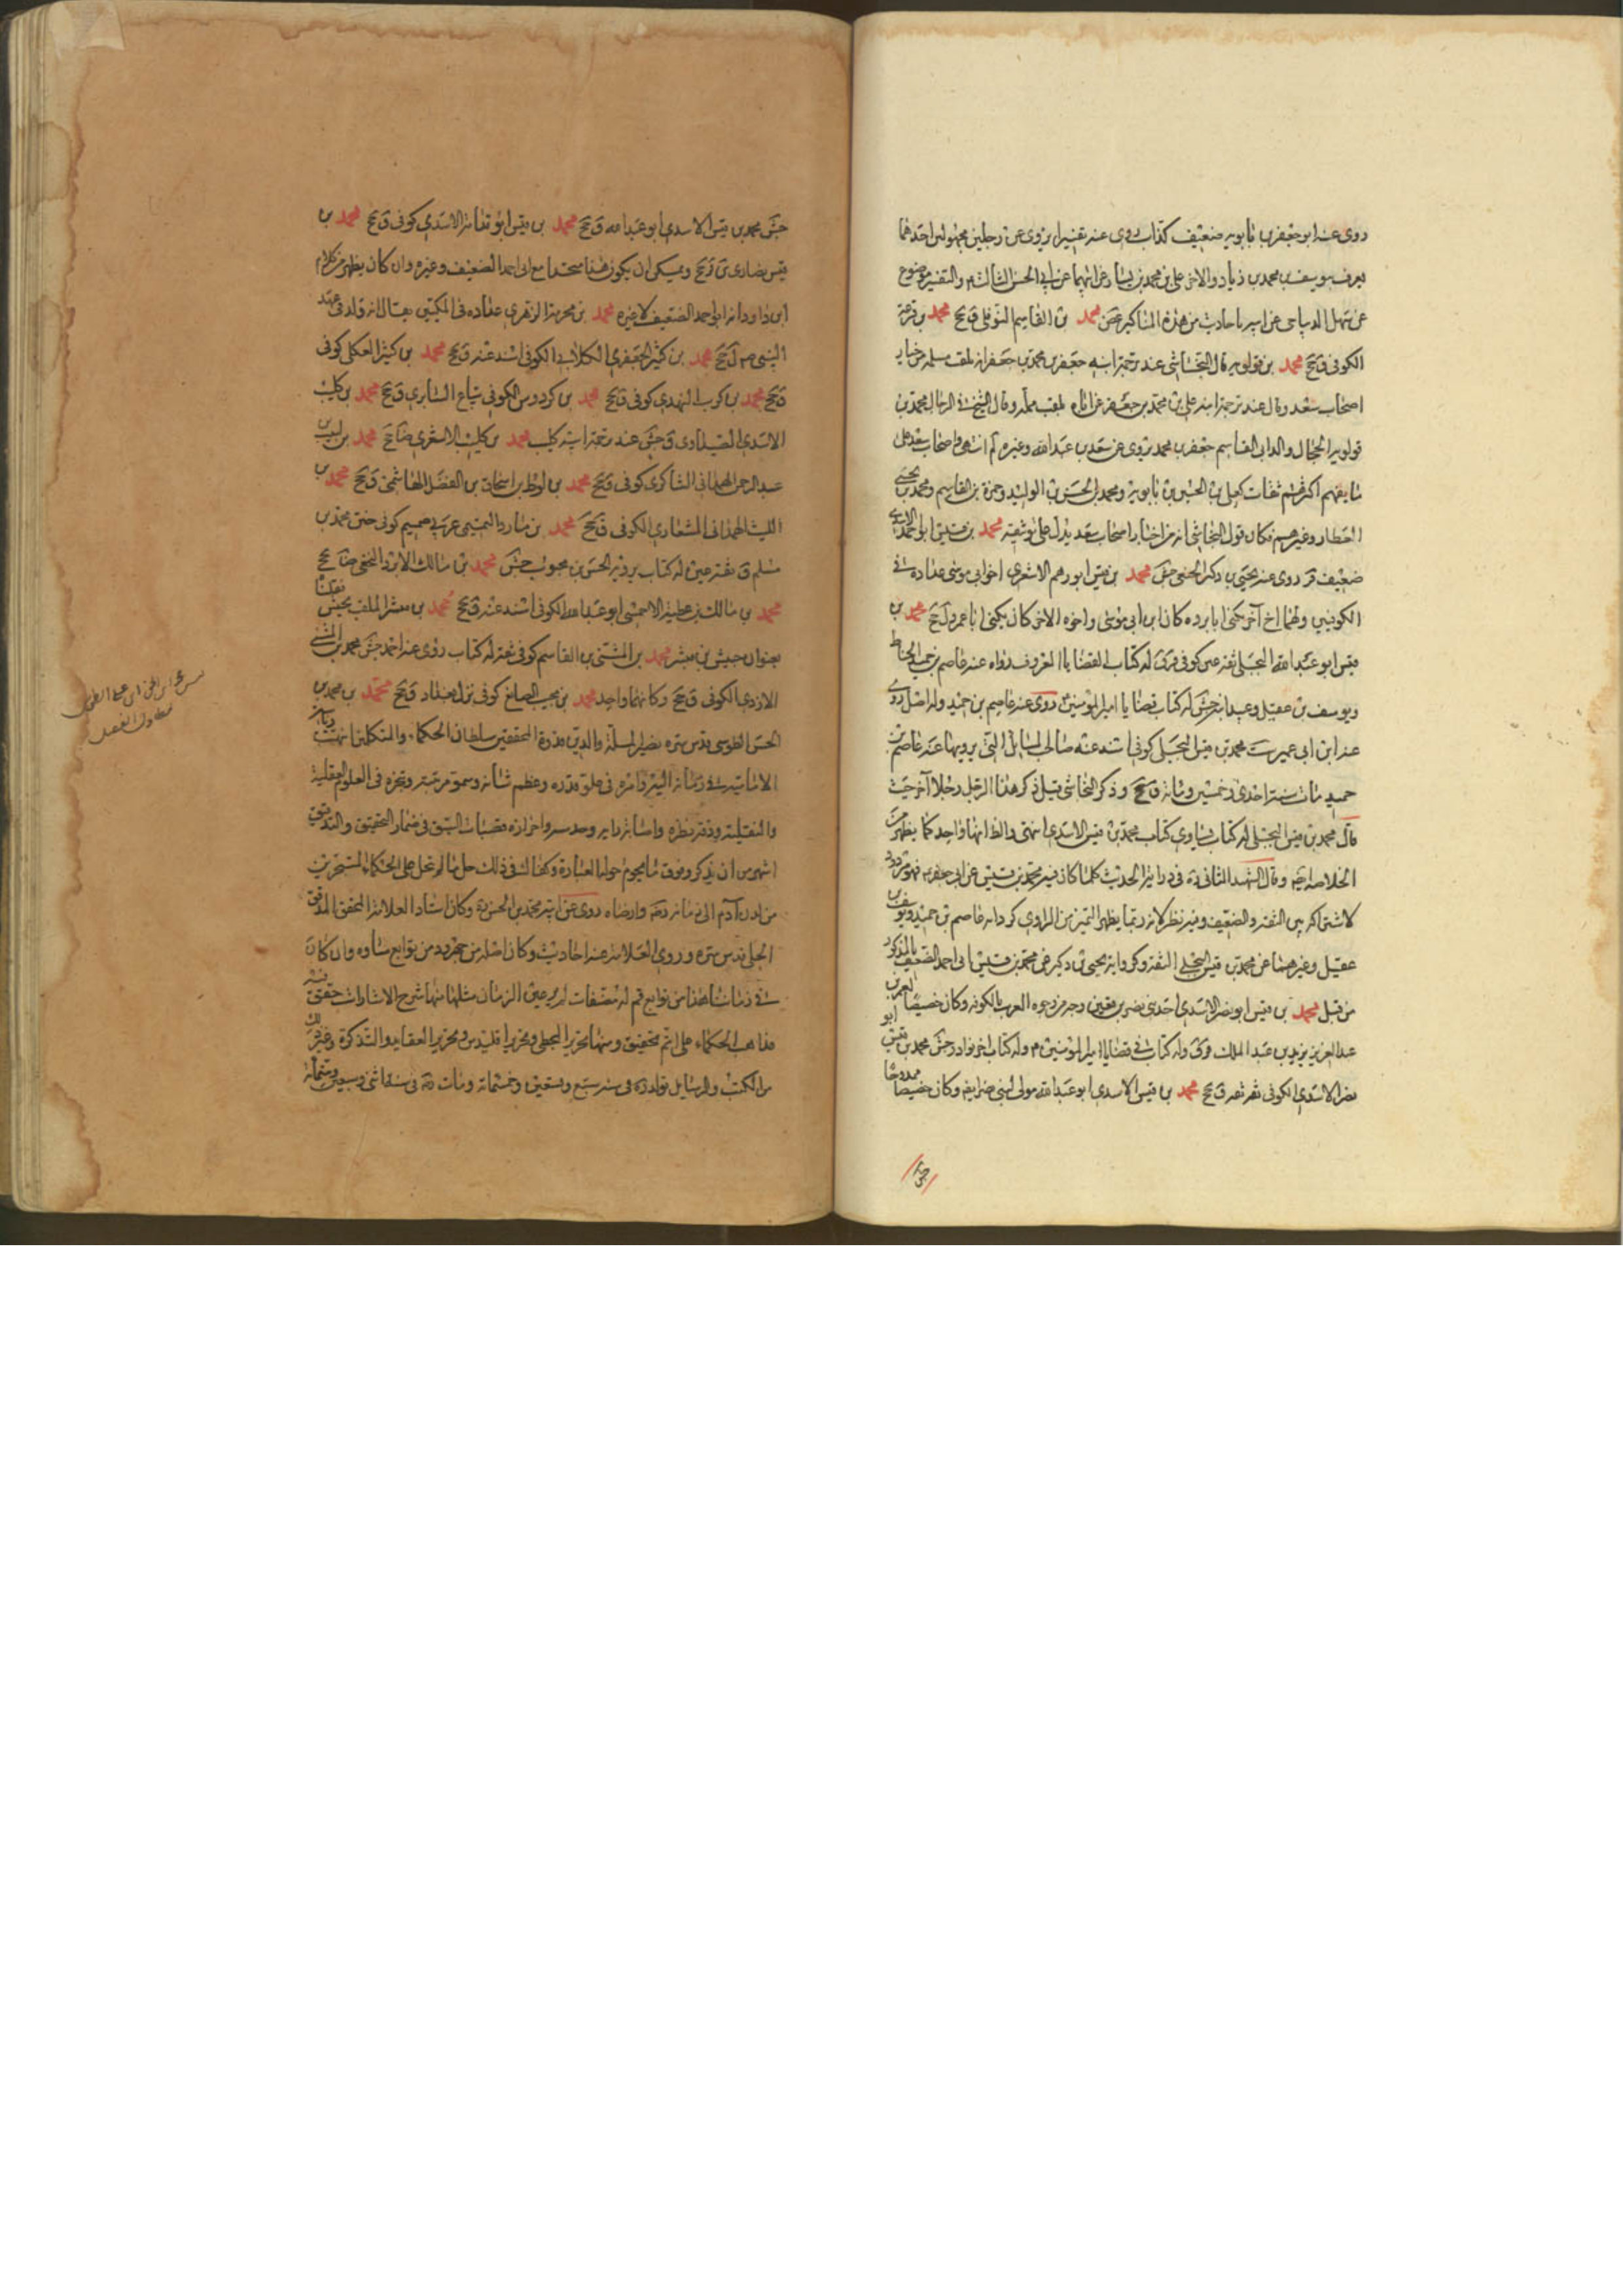 روى عنه ابو جعفر بن بابويه ضعيف كذاب روى عنه تفسيرا يرويه عن رجلين مجهولين احدهما
يعرف بيوسف بن محمد بن زياد والاخر علي بن محمد بن يسار عن ابيهما عن ابي الحسن الثالث ع والتفسير موضوع
عن سهل الديباجي عن ابيه باحاديث من هذه المناكير محمد بن القاسم النوفلي ق جخ محمد بن قرعة
الكوفي ق جخ محمد بن قولويه قال النجاشي عند ترجمة ابنه جعفر بن محمد بن جعفر انه يلقب مسلمة من خيار
اصحاب سعد وقال عند ترجمة ابنه علي بن محمد بن جعفر ان اباه يلقب مملة وقال الشيخ في الرجال محمد بن
قولويه الجمال والد ابي القاسم جعفر بن محمد يروي عن سعد بن عبد الله وغيره لم انتهى واصحاب سعد على
ما يفهم اكثرهم ثقات كعلي بن الحسين بن بابويه ومحمد بن الحسن بن الوليد وحمزة بن القاسم ومحمد بن يحيى
العطار وغيرهم فكان قول النجاشي انه من اخيار اصحاب سعد يدل على توثيقه محمد بن قيس ابو احمد الاسدي
ضعيف قر روى عنه يحيى بن زكريا الحنفي جش محمد بن قيس ابو رهم الاشعري اخو ابي موسى عداده في
الكوفيين ولهما اخ آخر يكنى ابا برده كان ابن ابي موسى واخوه الاخر كان يكنى ابا عمر ول جخ محمد بن
قيس ابو عبد الله البجلي ثقة عين كوفي قر ق له كتاب القضايا المعروف رواه عنه عاصم بن حميد الحناط
ويوسف بن عقيل وعبيد ابنه جش له كتاب قضايا امير المؤمنين روى عنه عاصم بن حميد وله اصل روى
عنه ابن ابي عمير ست محمد بن قيس البجلي كوفي اسند عنه صاحب المسائل التي يرويها عنه عاصم بن
حميد مات سنة احدى وخمسين ومائة ق جخ وذكر النجاشي قبل ذكر هذا الرجل رجلا آخر حيث
قال محمد بن قيس البجلي له كتاب يساوي كتاب محمد بن قيس الاسدي انتهى والظ انهما واحد كما يظهر من
الخلاصة ايضا وقال الشهيد الثاني ره في دراية الحديث كلما كان فيه محمد بن قيس عن ابي جعفر ع فهو مردود
لاشتراكه بين الثقة والضعيف وفيه نظر لانه ربما يظهر التميز من الراوي كرواية عاصم بن حميد ويوسف بن
عقيل وغيرهما عن محمد بن قيس البجلي الثقة وكرواية يحيى بن زكريا عن محمد بن قيس ابي احمد الضعيف المذكور
من قبل محمد بن قيس ابو نصر الاسدي احد بني نصر بن قعين وجه من وجوه العرب بالكوفة وكان خصيصا بعمر بن
عبد العزيز ويزيد بن عبد الملك قر ق وله كتاب في قضايا امير المؤمنين ع وله كتاب اخر نوادر جش محمد بن قيس ابو
نصر الاسدي الكوفي ثقة ثقة ق جخ محمد بن قيس الاسدي ابو عبد الله مولى لبني نصر ايضا وكان خصيصا ممدوحا
جش
جش محمد بن قيس الاسدي ابو عبد الله ق جخ محمد بن قيس ابو قدامة الاسدي كوفي ق جخ محمد بن
قيس نضاري ين قر جخ ويمكن ان يكون هذا متحدا مع ابي احمد الضعيف وغيره وان كان يظهر من كلام
ابن داود انه ابي احمد الضعيف لا غيره محمد بن محرمة الزهري عداده في المكيين يقال انه ولد في عهد
النبي ص ل جخ محمد بن كثير الجعفري الكلابي الكوفي اسند عنه ق جخ محمد بن كثير العكلي كوفي
ق جخ محمد بن كرب النهدي كوفي ق جخ محمد بن كردوس الكوفي بياع السابري ق جخ محمد بن كليب
الاسدي الصيداوي ق جش عند ترجمة ابنه كليب محمد بن كليب الاشعري ضا جخ محمد بن لبيب
عبد الرحمن الهمداني الشاكري كوفي ق جخ محمد بن لوط بن اسحاق بن الفضل الهاشمي ق جخ محمد بن
الليث الهمداني المشعاري الكوفي ق جخ محمد بن مارد التميمي عربي صميم كوفي ختن محمد بن
مسلم ق ثقة عين له كتاب يرويه الحسن بن محبوب جش محمد بن مالك بن الابرد النخعي ضا جخ
محمد بن مالك بن عطية الاحمسي ابو عبد الله الكوفي اسند عنه ق جخ محمد بن مبشر الملقب بحبيش نقلنا
بعنوان حبيش بن مبشر محمد بن المثنى بن القاسم كوفي ثقة له كتاب روى عنه احمد جش محمد بن المثنى
الازدي الكوفي ق جخ وكانهما واحد محمد بن مجيب الصايغ كوفي نزل بغداد ق جخ محمد بن محمد بن
الحسن الطوسي قدس سره نصير الملة والدين قدوة المحققين سلطان الحكماء والمتكلمين انتهت رياسة
الامامية في زمانه اليه وامره في علو قدره وعظم شانه وسمو مرتبته وتبحره في العلوم العقلية
والنقلية ودقة نظره واصابة رايه وحدسه واحرازه قصبات السبق في مضمار التحقيق والتدقيق
اشهر من ان يذكر وفوق ما يحوم حوله العبارة وكفاك في ذلك حل ما لم ينحل على الحكماء المتبحرين
من لدن آدم الى زمانه رضه وارضاه روى عن ابيه محمد بن الحسن ره وكان استاد العلامة المحقق المدقق
الحلي قدس سره وروى العلامة عنه احاديث وكان اصله من جهرود من توابع ساوه وان كان
في زماننا هذا من توابع قم له مصنفات لم ير عين الزمان مثلها منها شرح الاشارات حقق فيه
مذاهب الحكماء على اتم تحقيق ومنها تحرير المجسطي وتحرير اقليدس وتحرير العقايد والتذكرة وغير ذلك
من الكتب والرسايل تولد ره في سنة سبع وتسعين وخمسمائة ومات ره في سنة اثني وسبعين وستمائة